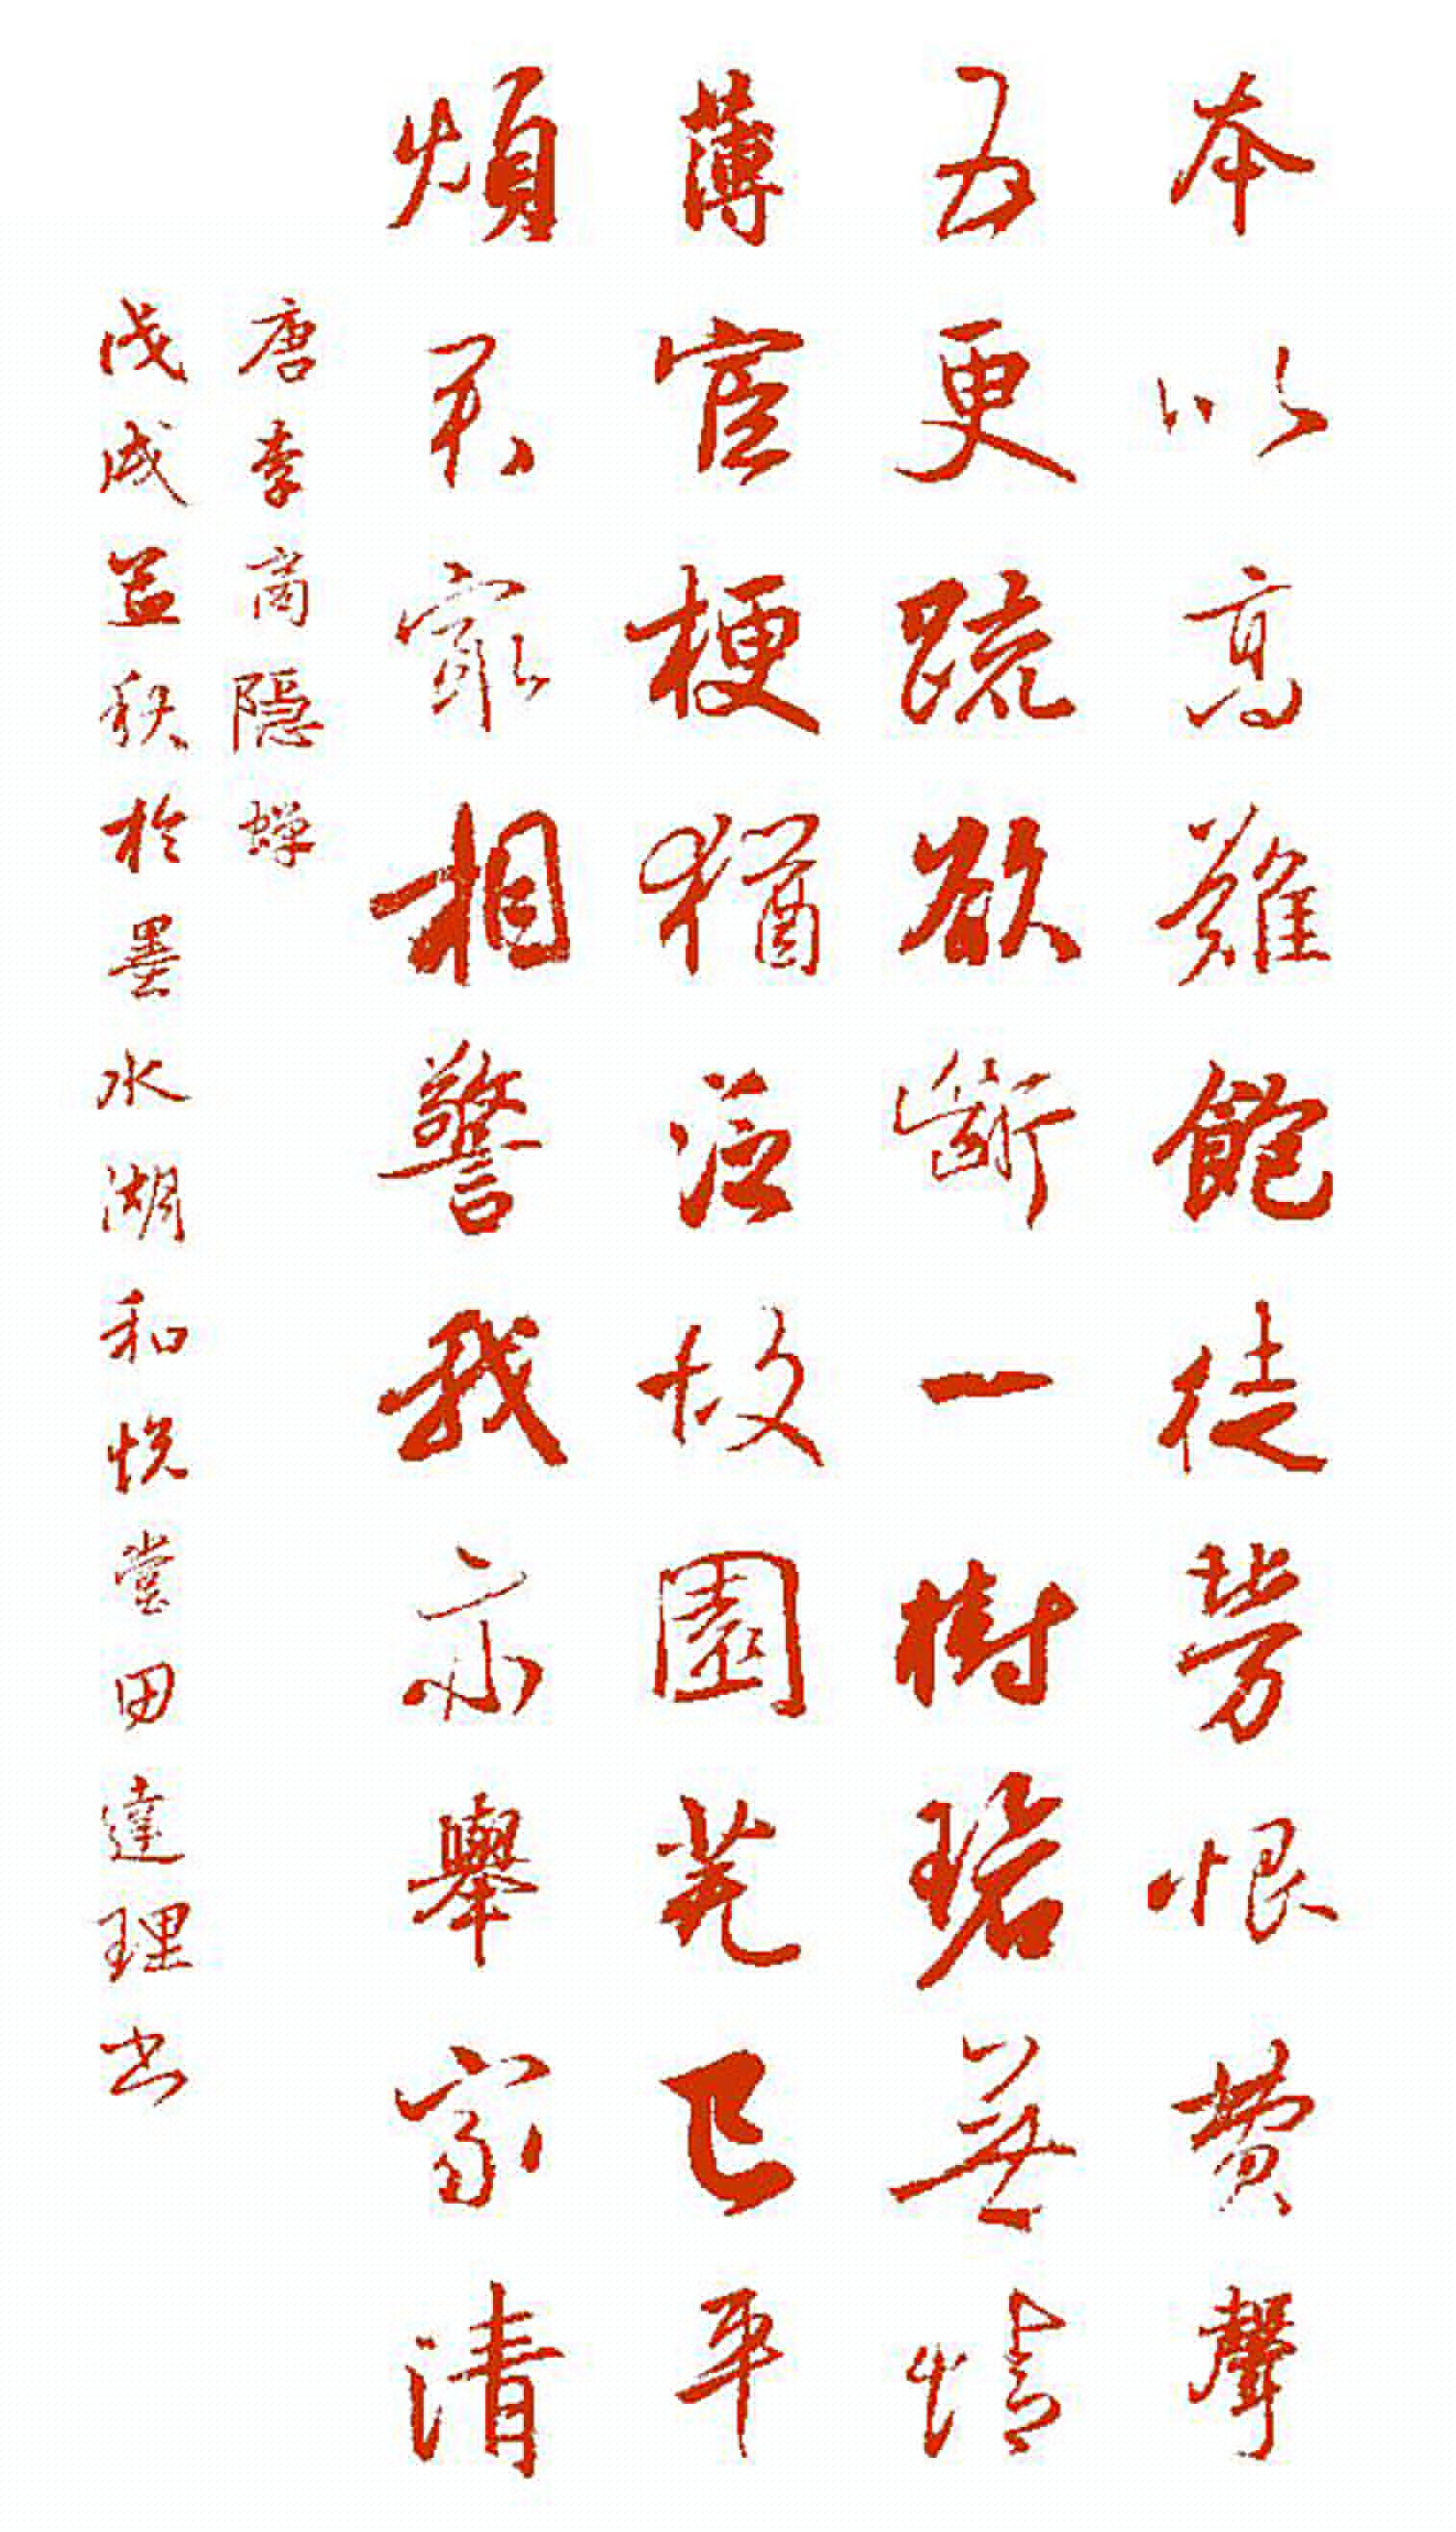 本以高難飽徒勞恨費聲
五更疏欲斷一樹碧無情
薄宦梗猶泛故園芜已平
煩君最相警我亦舉家清
唐李商隱蟬
戊戌孟秋於墨水湖和悦堂田達理书